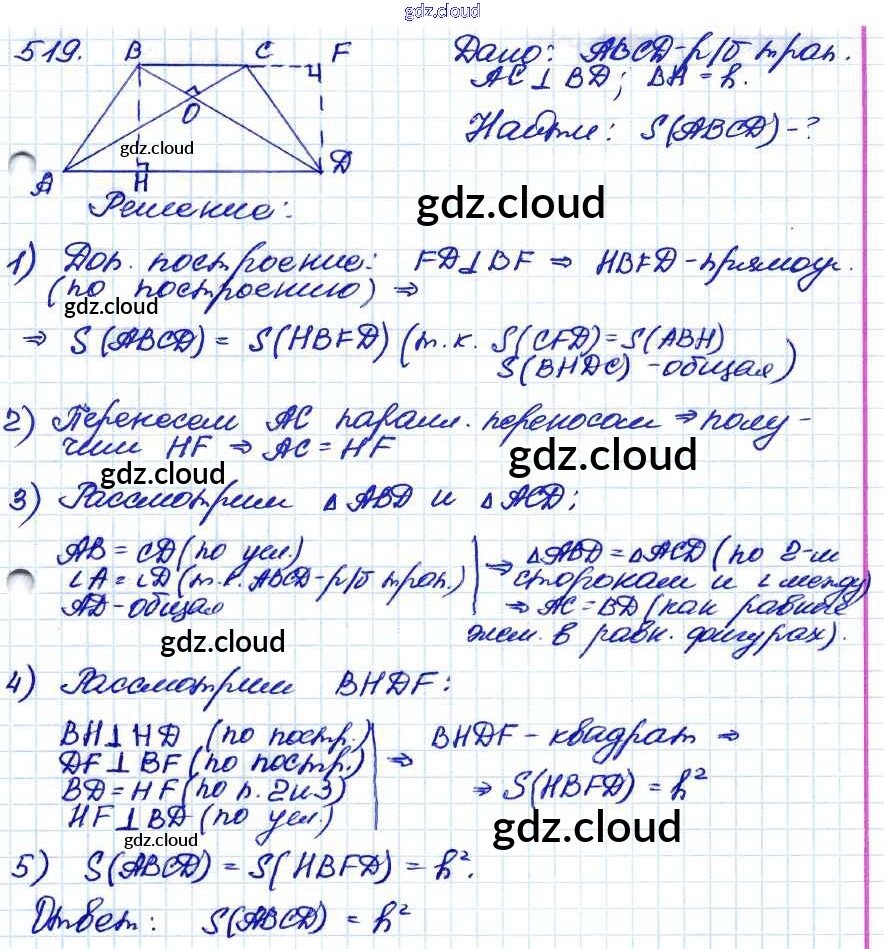 gdz.cloud
519. B C F
O
A H D
gdz.cloud
Дано: ABCD-р/б трап.
AC⊥BD; BH=h.
Найти: S(ABCD)-?
Решение:
gdz.cloud
1) Доп. построение: FD⊥BF ⇒ HBFD-прямоуг.
(по построению) ⇒
gdz.cloud
⇒ S(ABCD) = S(HBFD) (т.к. S(CFD)=S(ABH)
S(BHDC) -общая)
2) Перенесем AC паралл. переносом ⇒ полу-
чим HF ⇒ AC = HF
gdz.cloud
gdz.cloud
3) Рассмотрим △ABD и △ACD;
AB = CD (по усл.)
∠A = ∠D (т.к. ABCD-р/б трап.)
AD-общая
⇒ △ABD = △ACD (по 2-м
сторонам и ∠ между)
⇒ AC = BD (как равные
элем. в равн. фигурах).
gdz.cloud
4) Рассмотрим BHDF:
BH⊥HD (по постр.)
DF⊥BF (по постр.)
BD = HF (по п. 2 и 3)
HF⊥BD (по усл.)
⇒ BHDF - квадрат ⇒
⇒ S(HBFD) = h²
gdz.cloud
gdz.cloud
5) S(ABCD) = S(HBFD) = h².
Ответ: S(ABCD) = h²